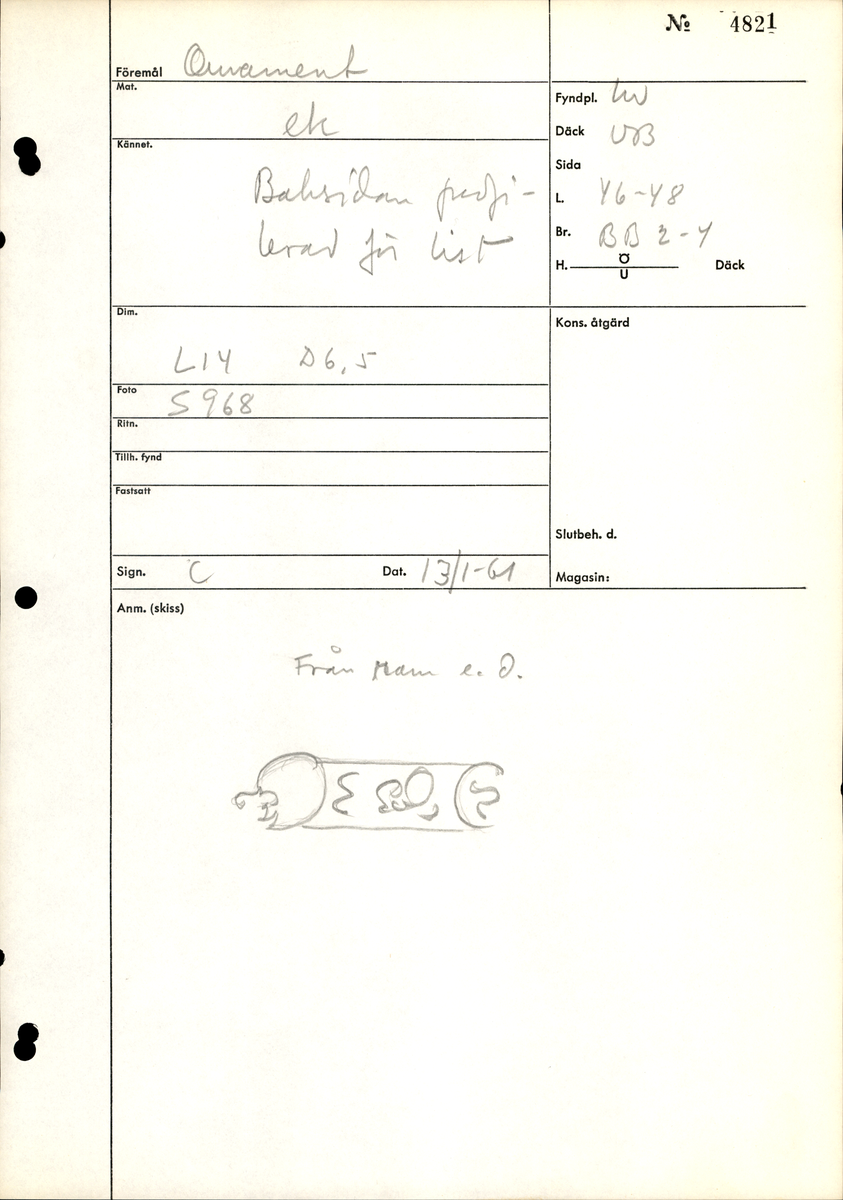 № 4821
Föremål Ornament
Mat. ek
Kännet. Baksidan profi-
lerad för list
Fyndpl. UV
Däck ÖB
Sida
L. 46-48
Br. BB 2-4
H. Ö U Däck
Dim. L14 D6,5
Foto S 968
Ritn.
Tillh. fynd
Fastsatt
Kons. åtgärd
Slutbeh. d.
Sign. C Dat. 13/1-61
Magasin:
Anm. (skiss)
Från e. d.